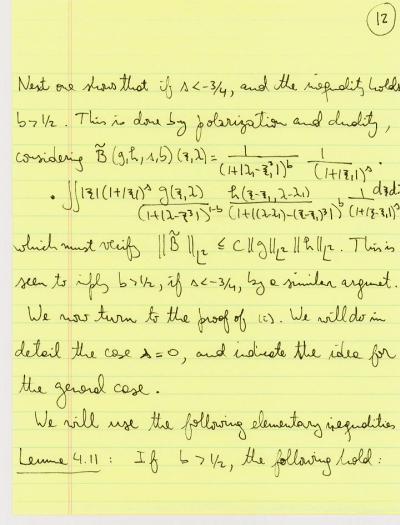 12
Next one shows that if s<-3/4, and the inequality holds
b>1/2. This is done by polarization and duality,
considering B̃(g,h,s,b)(ξ,λ) = 1/(1+|λ-ξ³|)^b 1/(1+|ξ|)^s ·
· ∬ |ξ|(1+|ξ|)^s g(ξ,λ)/(1+|λ-ξ³|)^{1-b} h(ξ-ξ₁,λ-λ₁)/(1+|(λ-λ₁)-(ξ-ξ₁)³|)^b 1/(1+|ξ-ξ₁|)^s dξ₁dλ₁
which must verify ||B̃||_{L²} ≤ C||g||_{L²} ||h||_{L²}. This is
seen to imply b>1/2, if s<-3/4, by a similar argument.
We now turn to the proof of (c). We will do in
detail the case s=0, and indicate the idea for
the general case.
We will use the following elementary inequalities
Lemma 4.11: If b>1/2, the following hold: